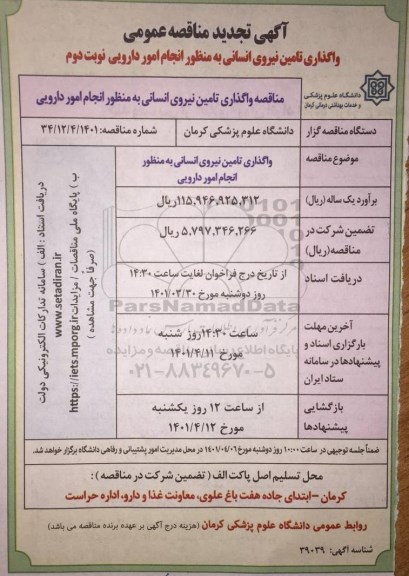 آگهی تجدید مناقصه عمومی
واگذاری تامین نیروی انسانی به منظور انجام امور دارویی نوبت دوم
دانشگاه علوم پزشکی
و خدمات بهداشتی درمانی کرمان
مناقصه واگذاری تامین نیروی انسانی به منظور انجام امور دارویی
دستگاه مناقصه گزار
دانشگاه علوم پزشکی کرمان
شماره مناقصه: ۳۴/۱۲/۴/۱۴۰۱
موضوع مناقصه
واگذاری تامین نیروی انسانی به منظور
انجام امور دارویی
برآورد یک ساله (ریال)
۱۱۵,۹۴۶,۹۲۵,۳۱۲ ریال
تضمین شرکت در
مناقصه(ریال)
۵,۷۹۷,۳۴۶,۲۶۶ ریال
دریافت اسناد
از تاریخ درج فراخوان لغایت ساعت ۱۴:۳۰
روز دوشنبه مورخ ۱۴۰۱/۰۳/۳۰
آخرین مهلت
بارگزاری اسناد و
پیشنهادها در سامانه
ستاد ایران
ساعت ۱۴:۳۰ روز شنبه
مورخ ۱۴۰۱/۴/۱۱
بازگشایی
پیشنهادها
از ساعت ۱۲ روز یکشنبه
مورخ ۱۴۰۱/۴/۱۲
دریافت اسناد : الف ) سامانه تدارکات الکترونیکی دولت
www.setadiran.ir
ب ) پایگاه ملی مناقصات / مزایدات https://iets.mporg.ir
(صرفاً جهت مشاهده )
ParsNamadData
پایگاه اطلاع رسانی مناقصه و مزایده
۰۲۱-۸۸۳۴۹۶۷۰-۵
ضمناً جلسه توجیهی در ساعت ۱۰:۰۰ روز دوشنبه مورخ ۱۴۰۱/۰۴/۰۶ در محل مدیریت امور پشتیبانی و رفاهی دانشگاه برگزار خواهد شد.
محل تسلیم اصل پاکت الف ( تضمین شرکت در مناقصه ) :
کرمان –ابتدای جاده هفت باغ علوی، معاونت غذا و دارو، اداره حراست
روابط عمومی دانشگاه علوم پزشکی کرمان (هزینه درج آگهی بر عهده برنده مناقصه می باشد)
شناسه آگهی: ۳۹۰۳۹